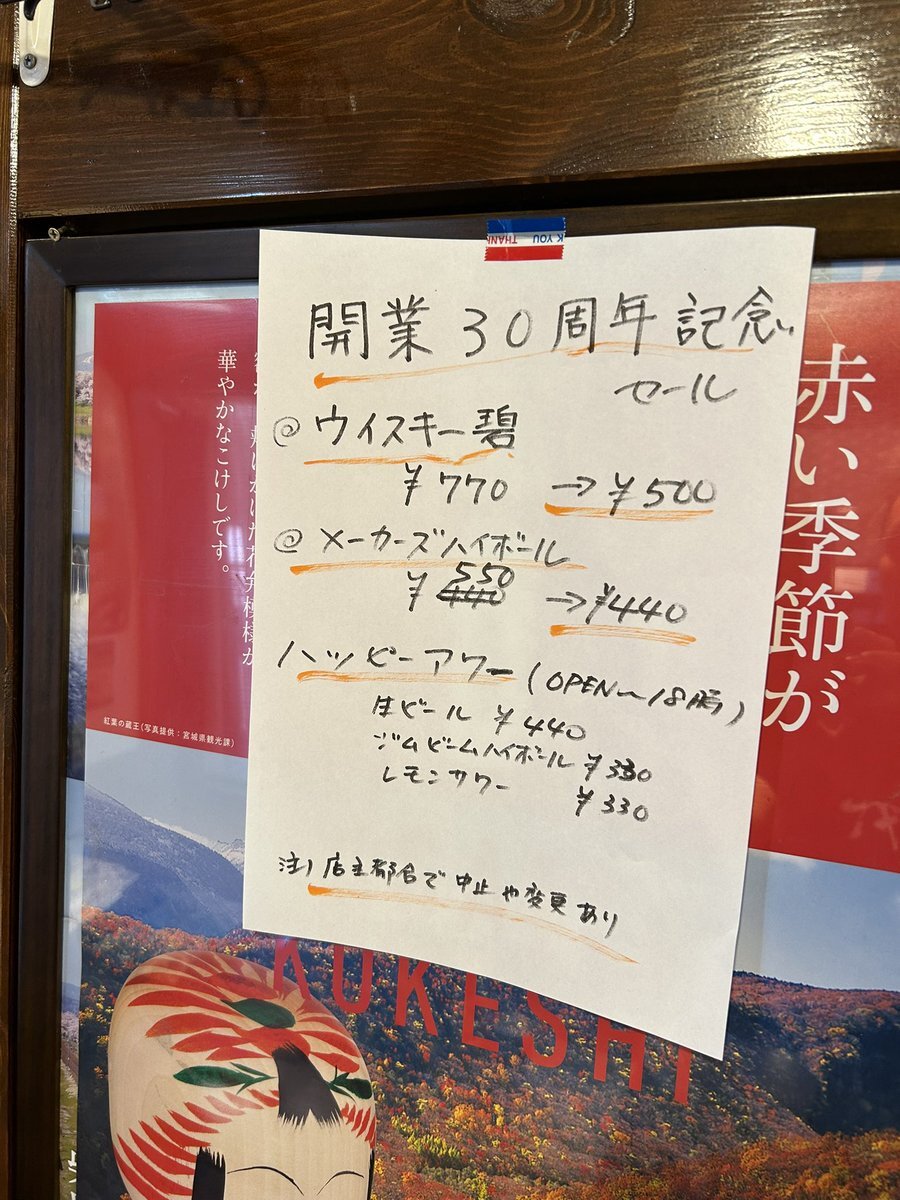 K YOU
THANK
開業30周年記念
セール
@ウイスキー碧
¥770 →¥500
@メーカーズハイボール
¥550 →¥440
ハッピーアワー(OPEN〜18時)
生ビール ¥440
ジムビームハイボール ¥330
レモンサワー ¥330
注)店主都合で中止や変更あり
赤い季節が
華やかなこけしです。
紅葉の蔵王(写真提供:宮城県観光課)
KOKESHI